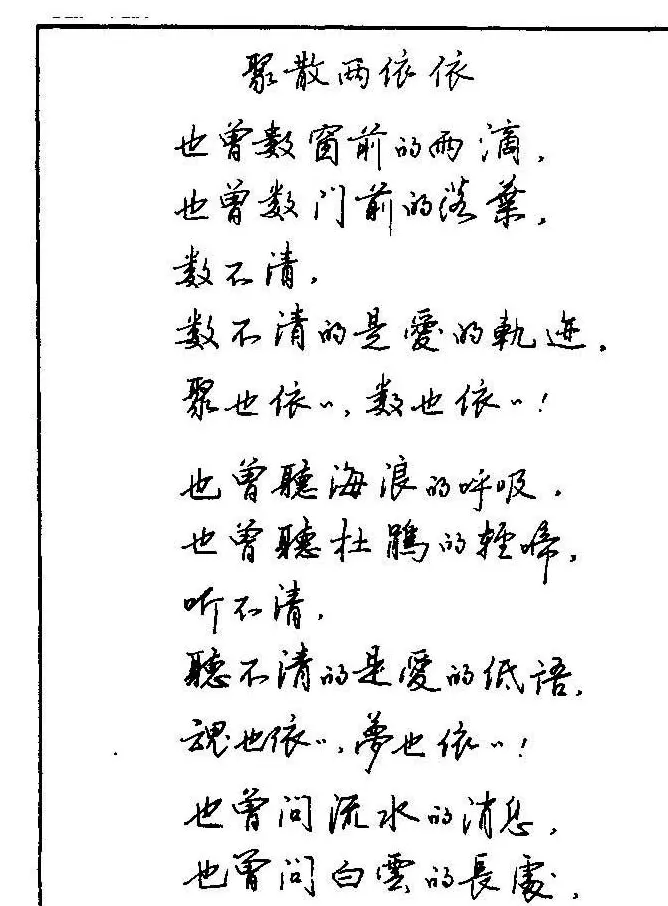 聚散两依依
也曾数窗前的雨滴,
也曾数门前的落葉,
数不清,
数不清的是愛的軌迹,
聚也依〃,散也依〃!
也曾聽海浪的呼吸,
也曾聽杜鵑的輕啼,
听不清,
聽不清的是愛的低語,
魂也依〃,夢也依〃!
也曾问流水的消息,
也曾问白雲的去處,